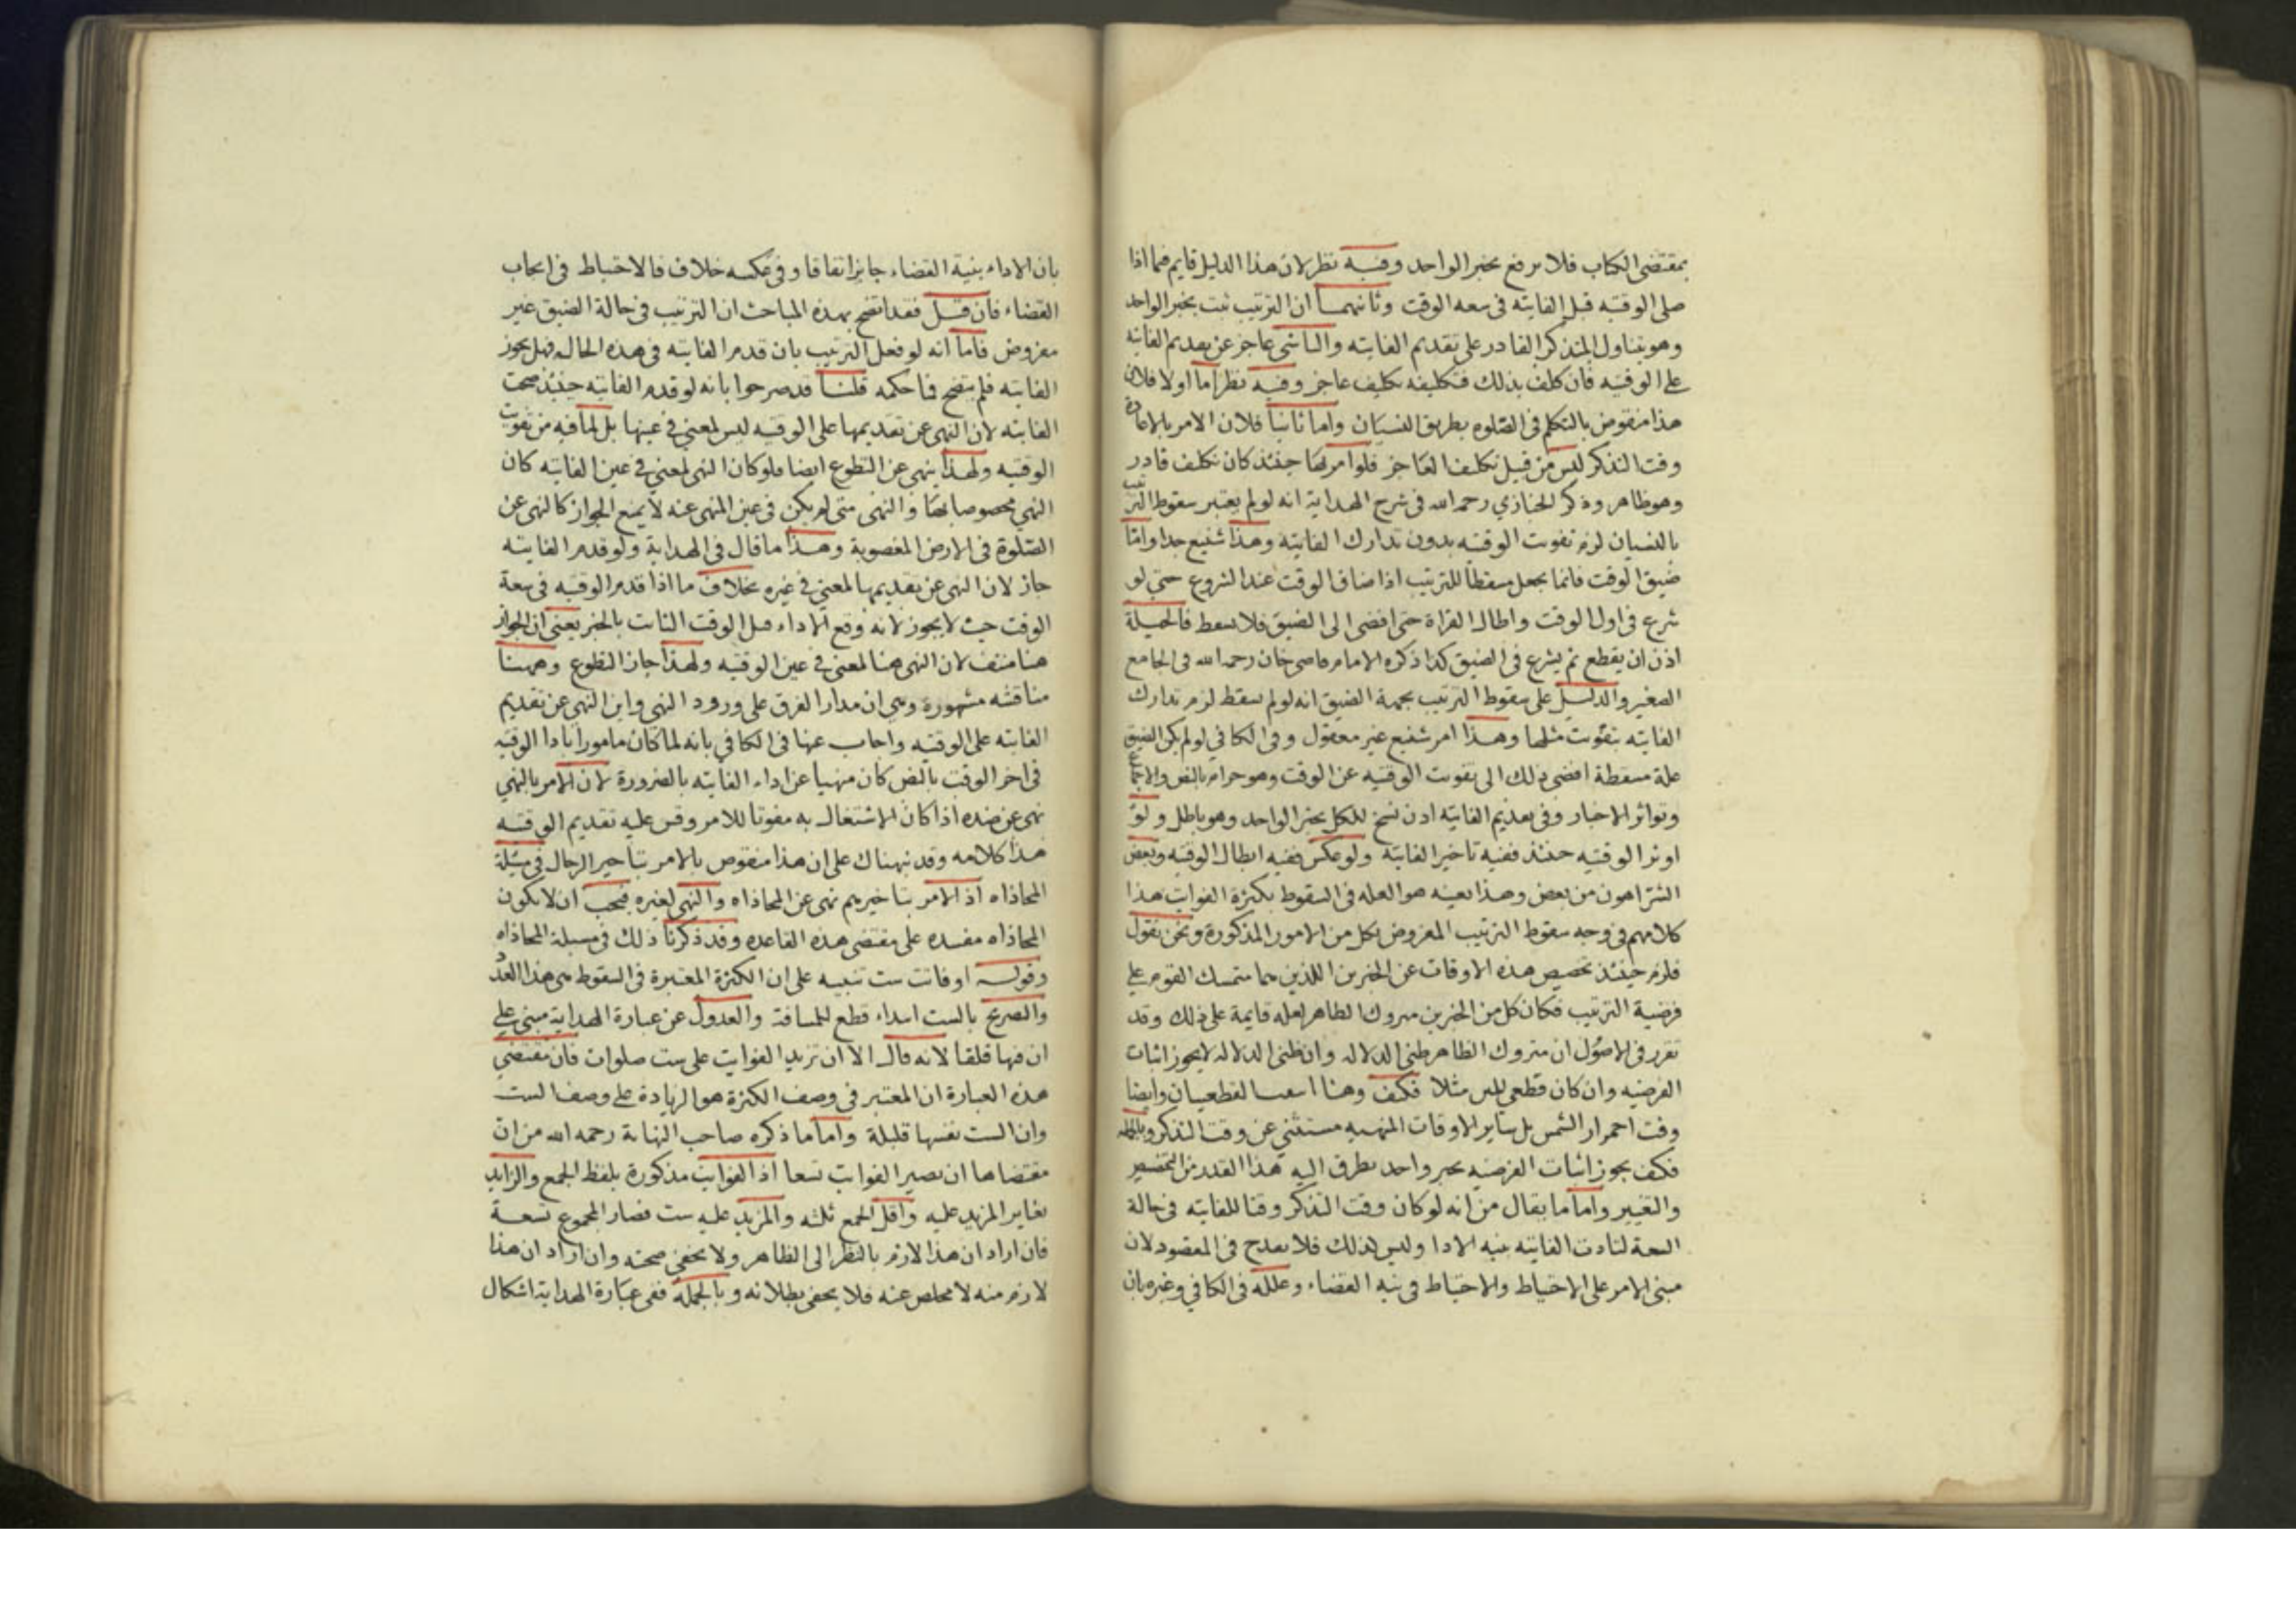 بمقتضى الكتاب فلا يرفع بخبر الواحد وفيه نظر لان هذا الدليل قايم فيما اذا
صلى الوقتيه قبل الفايته في سعه الوقت وثانيهما ان الترتيب ثبت بخبر الواحد
وهو يتناول المتذكر القادر على تقديم الفايته والناسي عاجز عن تقديم الفايته
على الوقتيه فان كلف بذلك فتكليفه تكليف عاجز وفيه نظر اما اولا فلان
هذا منقوض بالتكلم في الصلوه بطريق النسيان واما ثانيا فلان الامر بالاعادة
وقت التذكر ليس من قبيل تكليف العاجز فلو امر بها حينئذ كان تكليف قادر
وهو ظاهر وذكر الخبازي رحمه الله في شرح الهداية انه لو لم يعتبر سقوط الترتيب
بالنسيان لزم تفويت الوقتيه بدون تدارك الفايته وهذا شنيع جدا واما
ضيق الوقت فانما يجعل مسقطا للترتيب اذا ضاق الوقت عند الشروع حتى لو
شرع في اول الوقت واطال القراة حتى افضى الى الضيق فلا يسقط فالحيلة
اذن ان يقطع ثم يشرع في الضيق كذا ذكره الامام قاضي خان رحمه الله في الجامع
الصغير والدليل على سقوط الترتيب بجهة الضيق انه لو لم يسقط لزم تدارك
الفايته بتفويت مثلها وهذا امر شنيع غير معقول وفي الكافي لو لم يكن الضيق
علة مسقطة افضى ذلك الى تفويت الوقتيه عن الوقت وهو حرام بالنص والاجماع
وتواتر الاخبار وفي تقديم الفايته اذن نسخ للكل بخبر الواحد وهو باطل ولو
اوثر الوقتيه حينئذ ففيه تاخير الفايتة ولو عكس ففيه ابطال الوقتيه وبعض
الشر اهون من بعض وهذا بعينه هو العله في السقوط بكثرة الفوايت هذا
كلامهم في وجه سقوط الترتيب المفروض بكل من الامور المذكورة ونحن نقول
فلزم حينئذ تخصيص هذه الاوقات عن الخبرين اللذين هما متمسك القوم على
فرضية الترتيب فكان كل من الخبرين متروك الظاهر لعله قايمة على ذلك وقد
تقرر في الاصول ان متروك الظاهر ظني الدلاله وان ظني الدلاله لا يجوز اثبات
الفرضيه وان كان قطعي المتن مثلا فكيف وهنا القطعيان وايضا
وقت احمرار الشمس بل ساير الاوقات المنهيه مستثنى عن وقت التذكر وبالجمله
فكيف يجوز اثبات الفرضيه بخبر واحد يطرق اليه هذا القدر من التخصيص
والتغيير واما ما يقال من انه لو كان وقت التذكر وقتا للفايته في حالة
السعة لتادت الفايته بنيه الادا وليس كذلك فلا يقدح في المقصود لان
مبنى الامر على الاحتياط والاحتياط في نيه القضاء وعلله في الكافي وغيره بان
بان الاداء بنية القضاء جايز اتفاقا وفي عكسه خلاف فالاحتياط في ايجاب
القضاء فان قيل فقد اتضح بهذه المباحث ان الترتيب في حالة الضيق غير
مفروض فاما انه لو فعل الترتيب بان قدم الفايته في هذه الحاله فهل يجوز
الفايته فلم يتضح فما حكمه قلنا قد صرحوا بانه لو قدم الفايته حينئذ صحت
الفايته لان النهي عن تقديمها على الوقتيه ليس لمعنى في عينها بل لما فيه من تفويت
الوقتيه ولهذا ينهى عن التطوع ايضا فلو كان النهي لمعنى في عين الفايته كان
النهي مخصوصا بها والنهي متى لم يكن في عين المنهي عنه لا يمنع الجواز كالنهي عن
الصلوة في الارض المغصوبة وهذا ما قال في الهداية ولو قدم الفايته
جاز لان النهي عن تقديمها لمعنى في غيره بخلاف ما اذا قدم الوقتيه في سعة
الوقت حيث لا يجوز لانه وقع الاداء قبل الوقت الثابت بالخبر يعني ان الجواز
هنا منتف لان النهي هنا لمعنى في عين الوقتيه ولهذا جاز التطوع وههنا
مناقشه مشهورة وهي ان مدار الفرق على ورود النهي واين النهي عن تقديم
الفايته على الوقتيه واجاب عنها في الكافي بانه لما كان مامورا بادا الوقتيه
في اخر الوقت بالنص كان منهيا عن اداء الفايته بالضرورة لان الامر بالنهي
نهى عن ضده اذا كان الاشتغال به مفوتا للامر وقس عليه تقديم الوقتيه
هذا كلامه وقد نبهناك على ان هذا منقوض بالامر بتاخير الرجال في مسئلة
المحاذاه اذ الامر بتاخيرهم نهى عن المحاذاه والنهي لغيره فيجب ان لا يكون
المحاذاه مفسده على مقتضى هذه القاعده وقد ذكرنا ذلك في مسيلة المحاذاه
وقوله او فاتت ست تنبيه على ان الكثرة المعتبرة في السقوط هي هذا العدد
والتصريح بالست ابتداء قطع للمسافة والعدول عن عبارة الهداية مبني على
ان فيها قلقا لانه قال الا ان تزيد الفوايت على ست صلوات فان مقتضى
هذه العبارة ان المعتبر في وصف الكثرة هو الزيادة على وصف الست
وان الست نفسها قليلة واما ما ذكره صاحب النهاية رحمه الله من ان
مقتضاها ان تصير الفوايت تسعا اذ الفوايت مذكورة بلفظ الجمع والزايد
يغاير المزيد عليه واقل الجمع ثلثه والمزيد عليه ست فصار المجموع تسعة
فان اراد ان هذا لازم بالنظر الى الظاهر ولا يخفى صحته وان اراد ان هذا
لازم منه لا مخلص عنه فلا يخفى بطلانه وبالجملة ففي عبارة الهداية اشكال